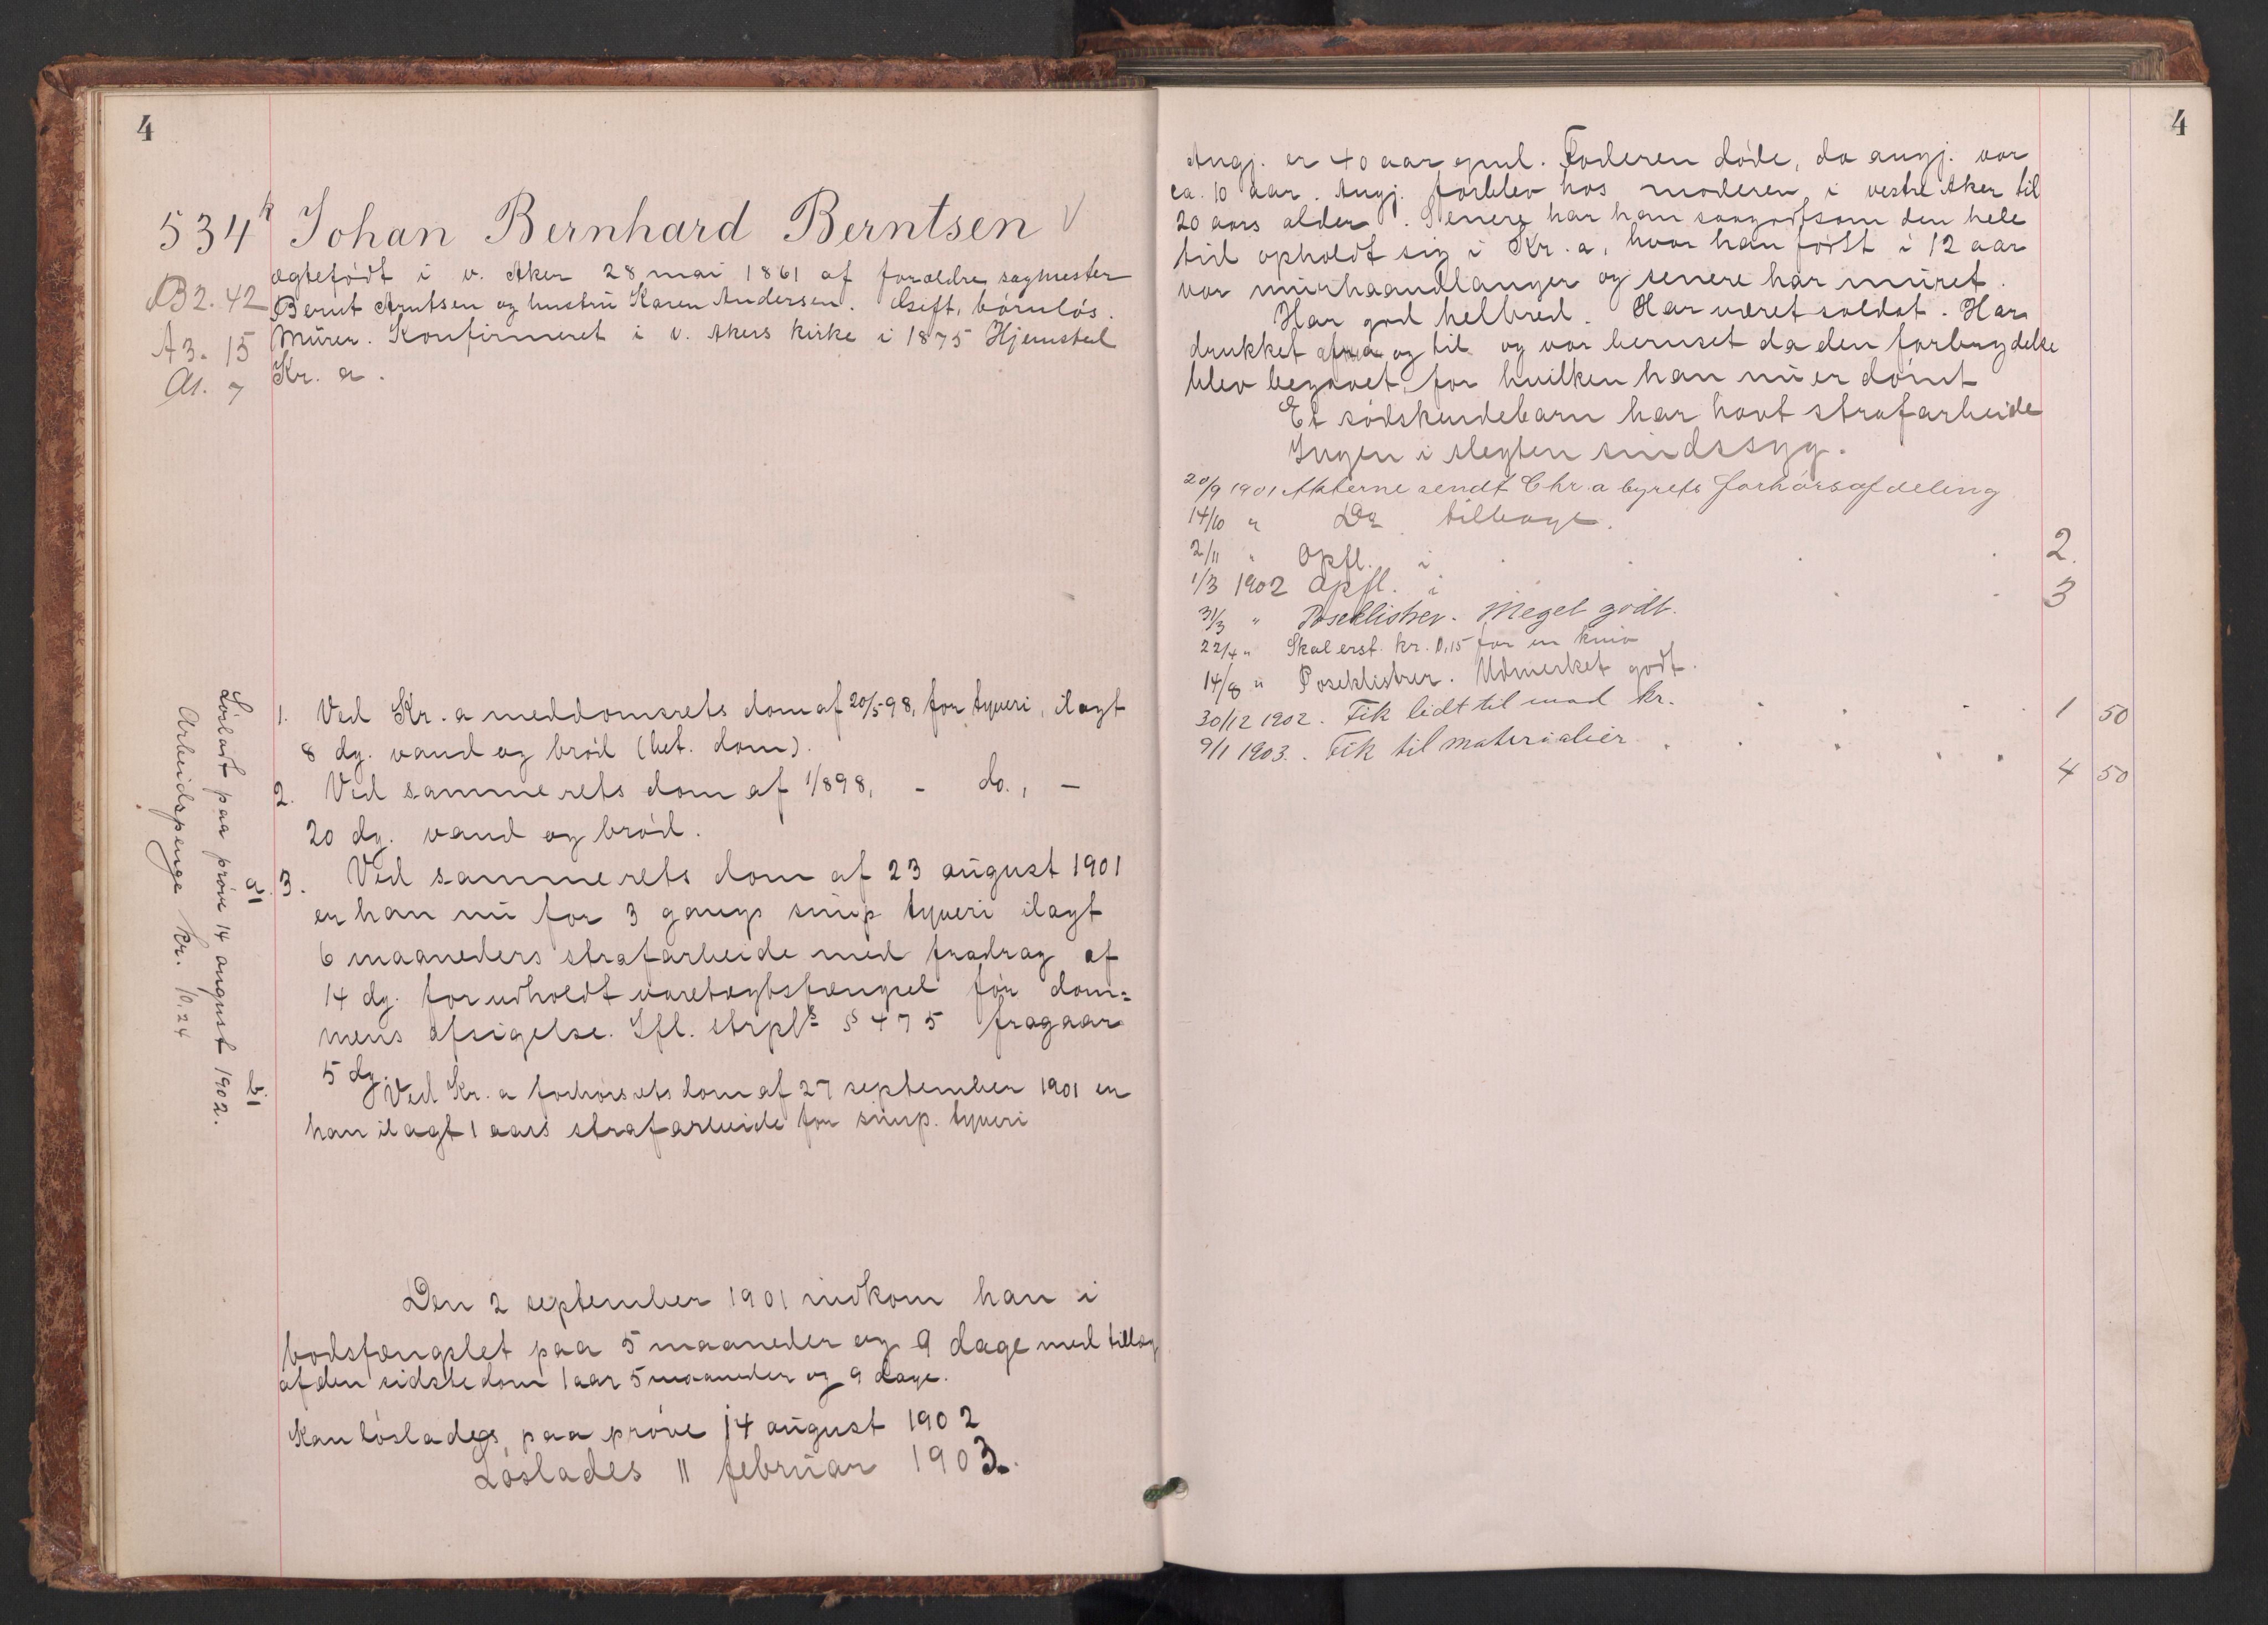 4
534 k Johan Bernhard Berntsen V
ægtefødt i v. Aker 28 mai 1861 af forældre sagmester
B2. 42 Bernt Arntsen og hustru Karen Andersen. Gift, børnløs.
A3. 15 Murer. Konfirmeret i v. Akers kirke i 1875 Hjemsted
A1. 7 Kr. a.
1. Ved Kr. a meddomsrets dom af 20/5 98, for tyveri, ilagt
8 dg. vand og brød (bet. dom).
2. Ved samme rets dom af 1/8 98, - do., -
20 dg. vand og brød.
a. 3. Ved samme rets dom af 23 august 1901
er han nu for 3 gangs simp tyveri ilagt
6 maaneders strafarbeide med fradrag af
14 dg. for udholdt varetægtsfængsel før dom=
mens afsigelse. Ifl. strpls § 475 fragaar
5 dg.
b. Ved Kr. a forhørsrets dom af 27 september 1901 er
han ilagt 1 aars strafarbeide for simp. tyveri
Løsladt paa prøve 14 august 1902.
Arbeidspenge kr. 10,24
Den 2 september 1901 indkom han i
bodsfængslet paa 5 maaneder og 9 dage med tillæg
af den sidste dom 1 aar 5 maaneder og 9 dage.
Kan løslades paa prøve 14 august 1902
Løslades 11 februar 1903.
4
Angj. er 40 aar gml. Faderen døde, da angj. var
ca. 10 aar. Angj. forblev hos moderen i vestre Aker til
20 aars alder. Senere har han saagodtsom den hele
tid opholdt sig i Kr. a, hvor han først i 12 aar
var murhaandlanger og senere har muret.
Har god helbred. Har været soldat. Har
drukket af og til og var beruset da den forbrydelse
blev begaaet, for hvilken han nu er dømt
Et sødskendebarn har havt strafarbeide
Ingen i slegten sindssyg.
20/9 1901 Akterne sendt Chr.a byrets forhørsafdeling
14/10 " Do tilbage.
2/11 " Opfl. i . . . 2.
1/3 1902 Opfl. i . . 3
31/3 " Poseklistrer. Meget godt.
22/4 " Skal erst. kr. 0,15 for en kniv
14/8 " Poseklistrer. Udmerket godt.
30/12 1902. Fik lidt til mad kr. . . . 1 50
9/1 1903. Fik til materialier . . . . 4 50